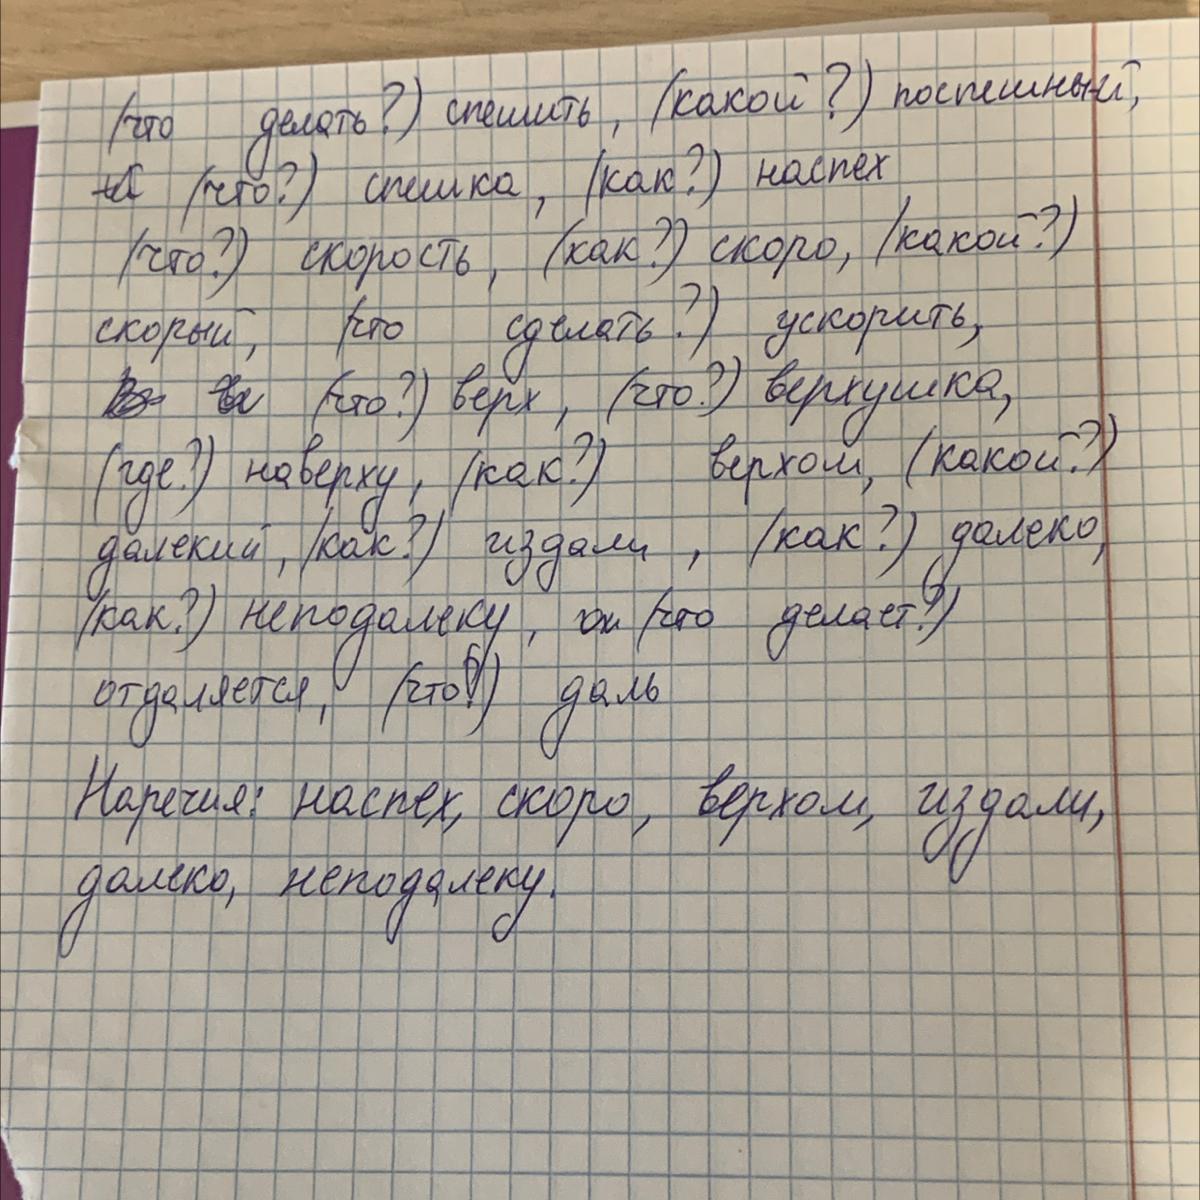 (что делать?) спешить, (какой?) поспешный,
(что?) спешка, (как?) наспех
(что?) скорость, (как?) скоро, (какой?)
скорый, (что сделать?) ускорить,
(что?) верх, (что?) верхушка,
(где?) наверху, (как?) верхом, (какой?)
далекий, (как?) издали, (как?) далеко,
(как?) неподалеку, он (что делает?)
отдаляется, (что?) даль
Наречия: наспех, скоро, верхом, издали,
далеко, неподалеку.